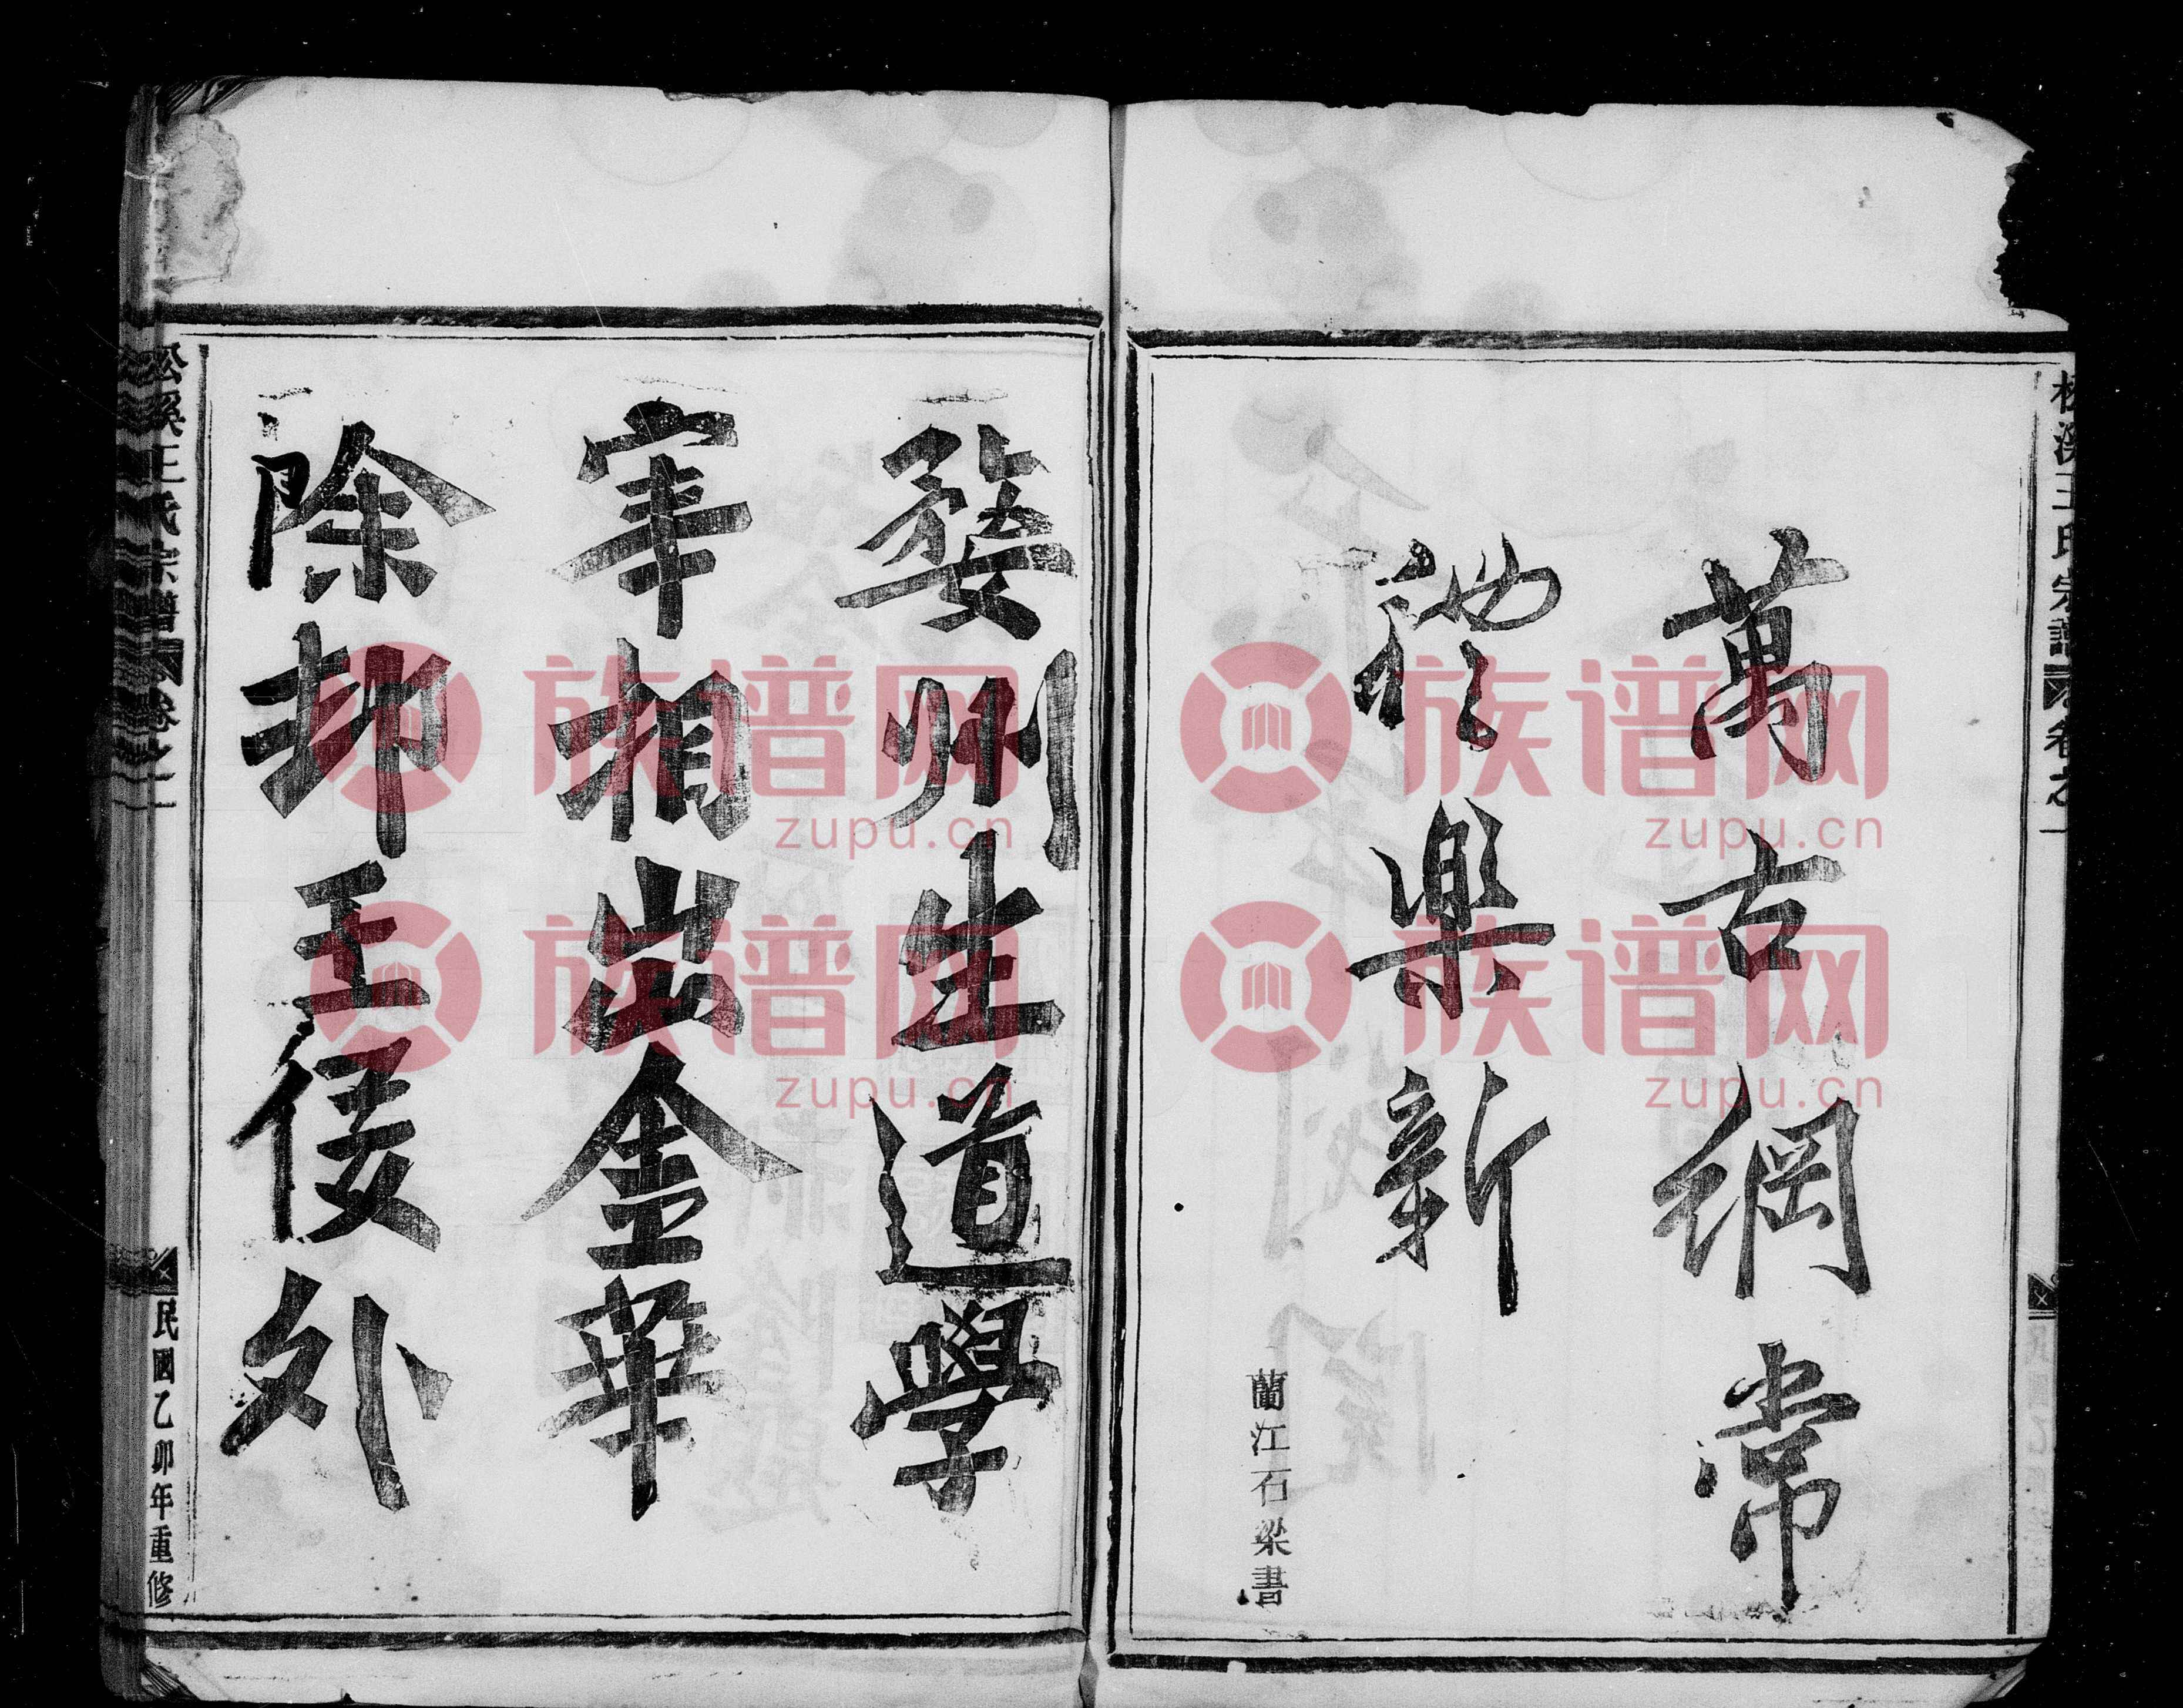 萬古綱常
禮樂新
蘭江石梁書
婺州生道學
宰相出金華
除却王侯外
松溪王氏宗譜 卷之一
民國乙卯年重修
族谱网
zupu.cn
族谱网
zupu.cn
族谱网
zupu.cn
族谱网
zupu.cn